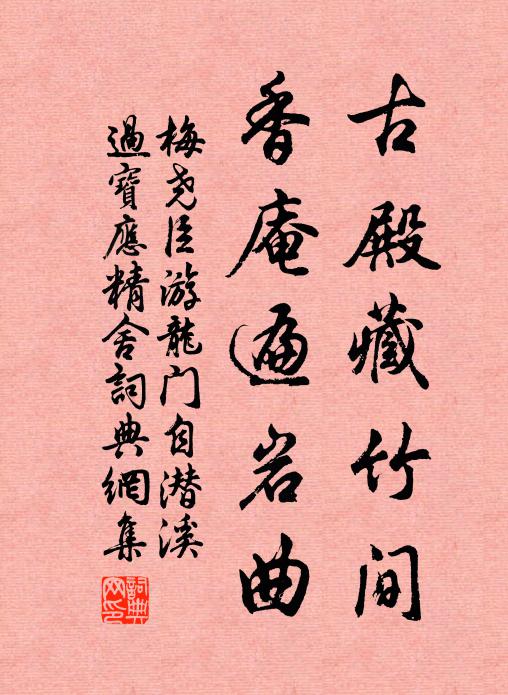 古殿藏竹间
香庵遍岩曲
梅尧臣游龍门自潜溪
過寶應精舍詞典網集
詞典网印